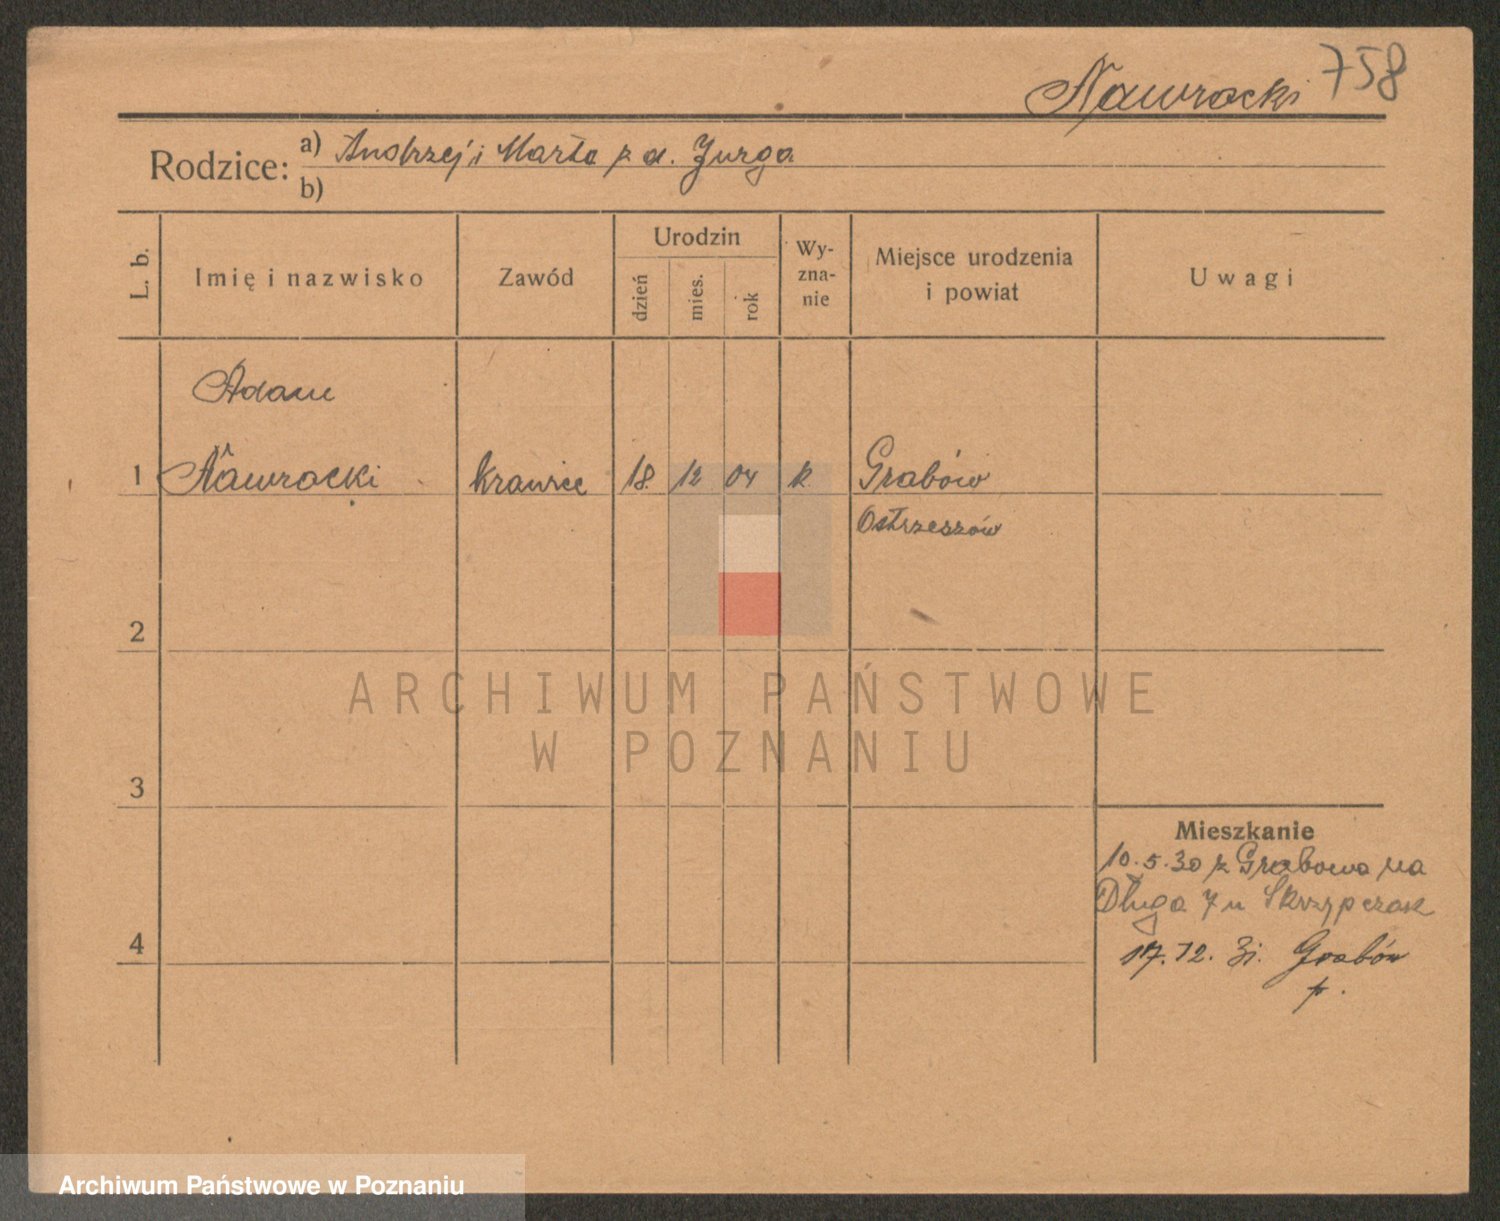 Nawrocki 758
Rodzice: a) Andrzej i Marta z d. Jurga
b)
L. b.
Imię i nazwisko
Zawód
Urodzin
dzień
mies.
rok
Wy-
zna-
nie
Miejsce urodzenia
i powiat
Uwagi
Adam
1 Nawrocki krawiec 18 12 04 k Grabów
Ostrzeszów
2
ARCHIWUM PAŃSTWOWE
W POZNANIU
3
Mieszkanie
10.5.30 z Grabowa na
Długa 7 u Skrzypczak
4
17.12. 31. Grabów
p.
Archiwum Państwowe w Poznaniu